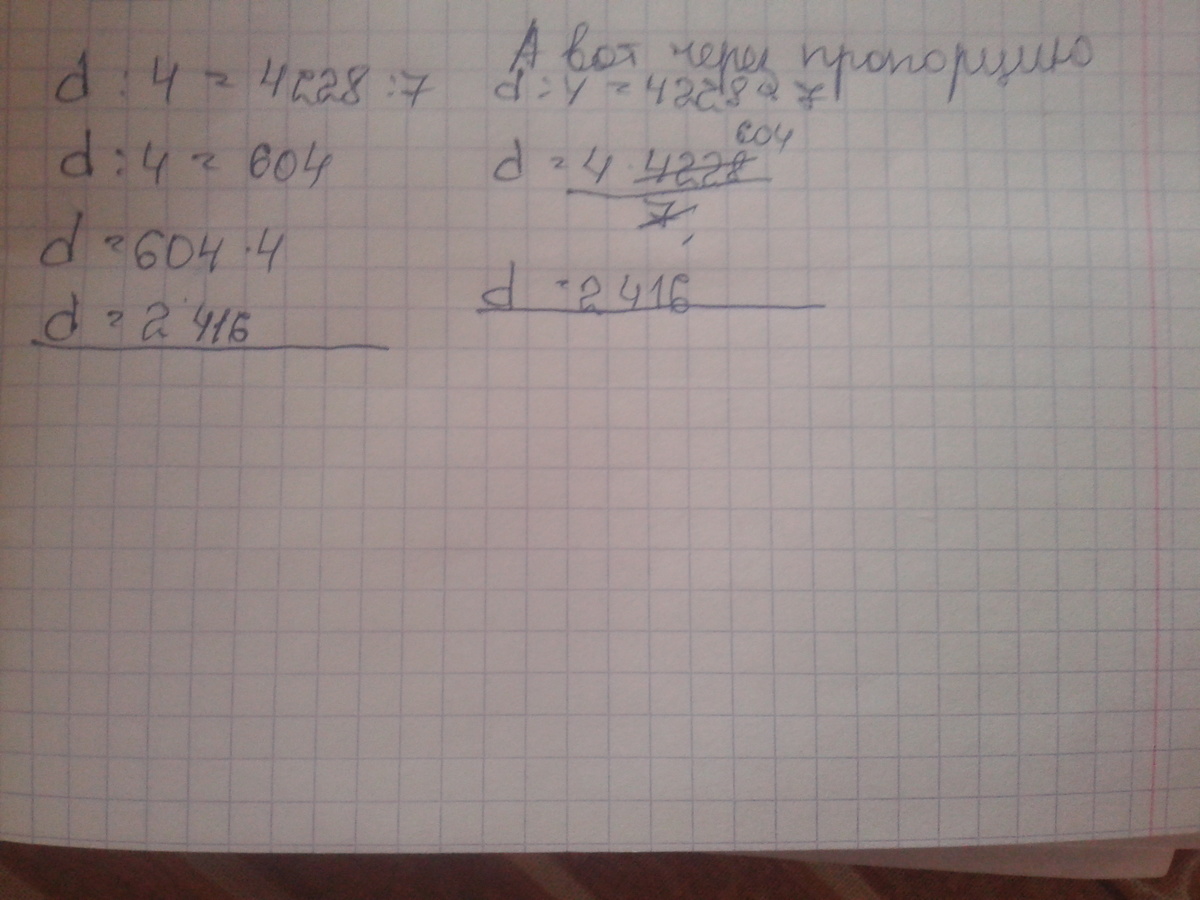 d : 4 = 4228 : 7
d : 4 = 604
d = 604 · 4
d = 2 416
А вот через пропорцию
d : 4 = 4228 : 7
604
d = 4 · 4228
7
d = 2 416